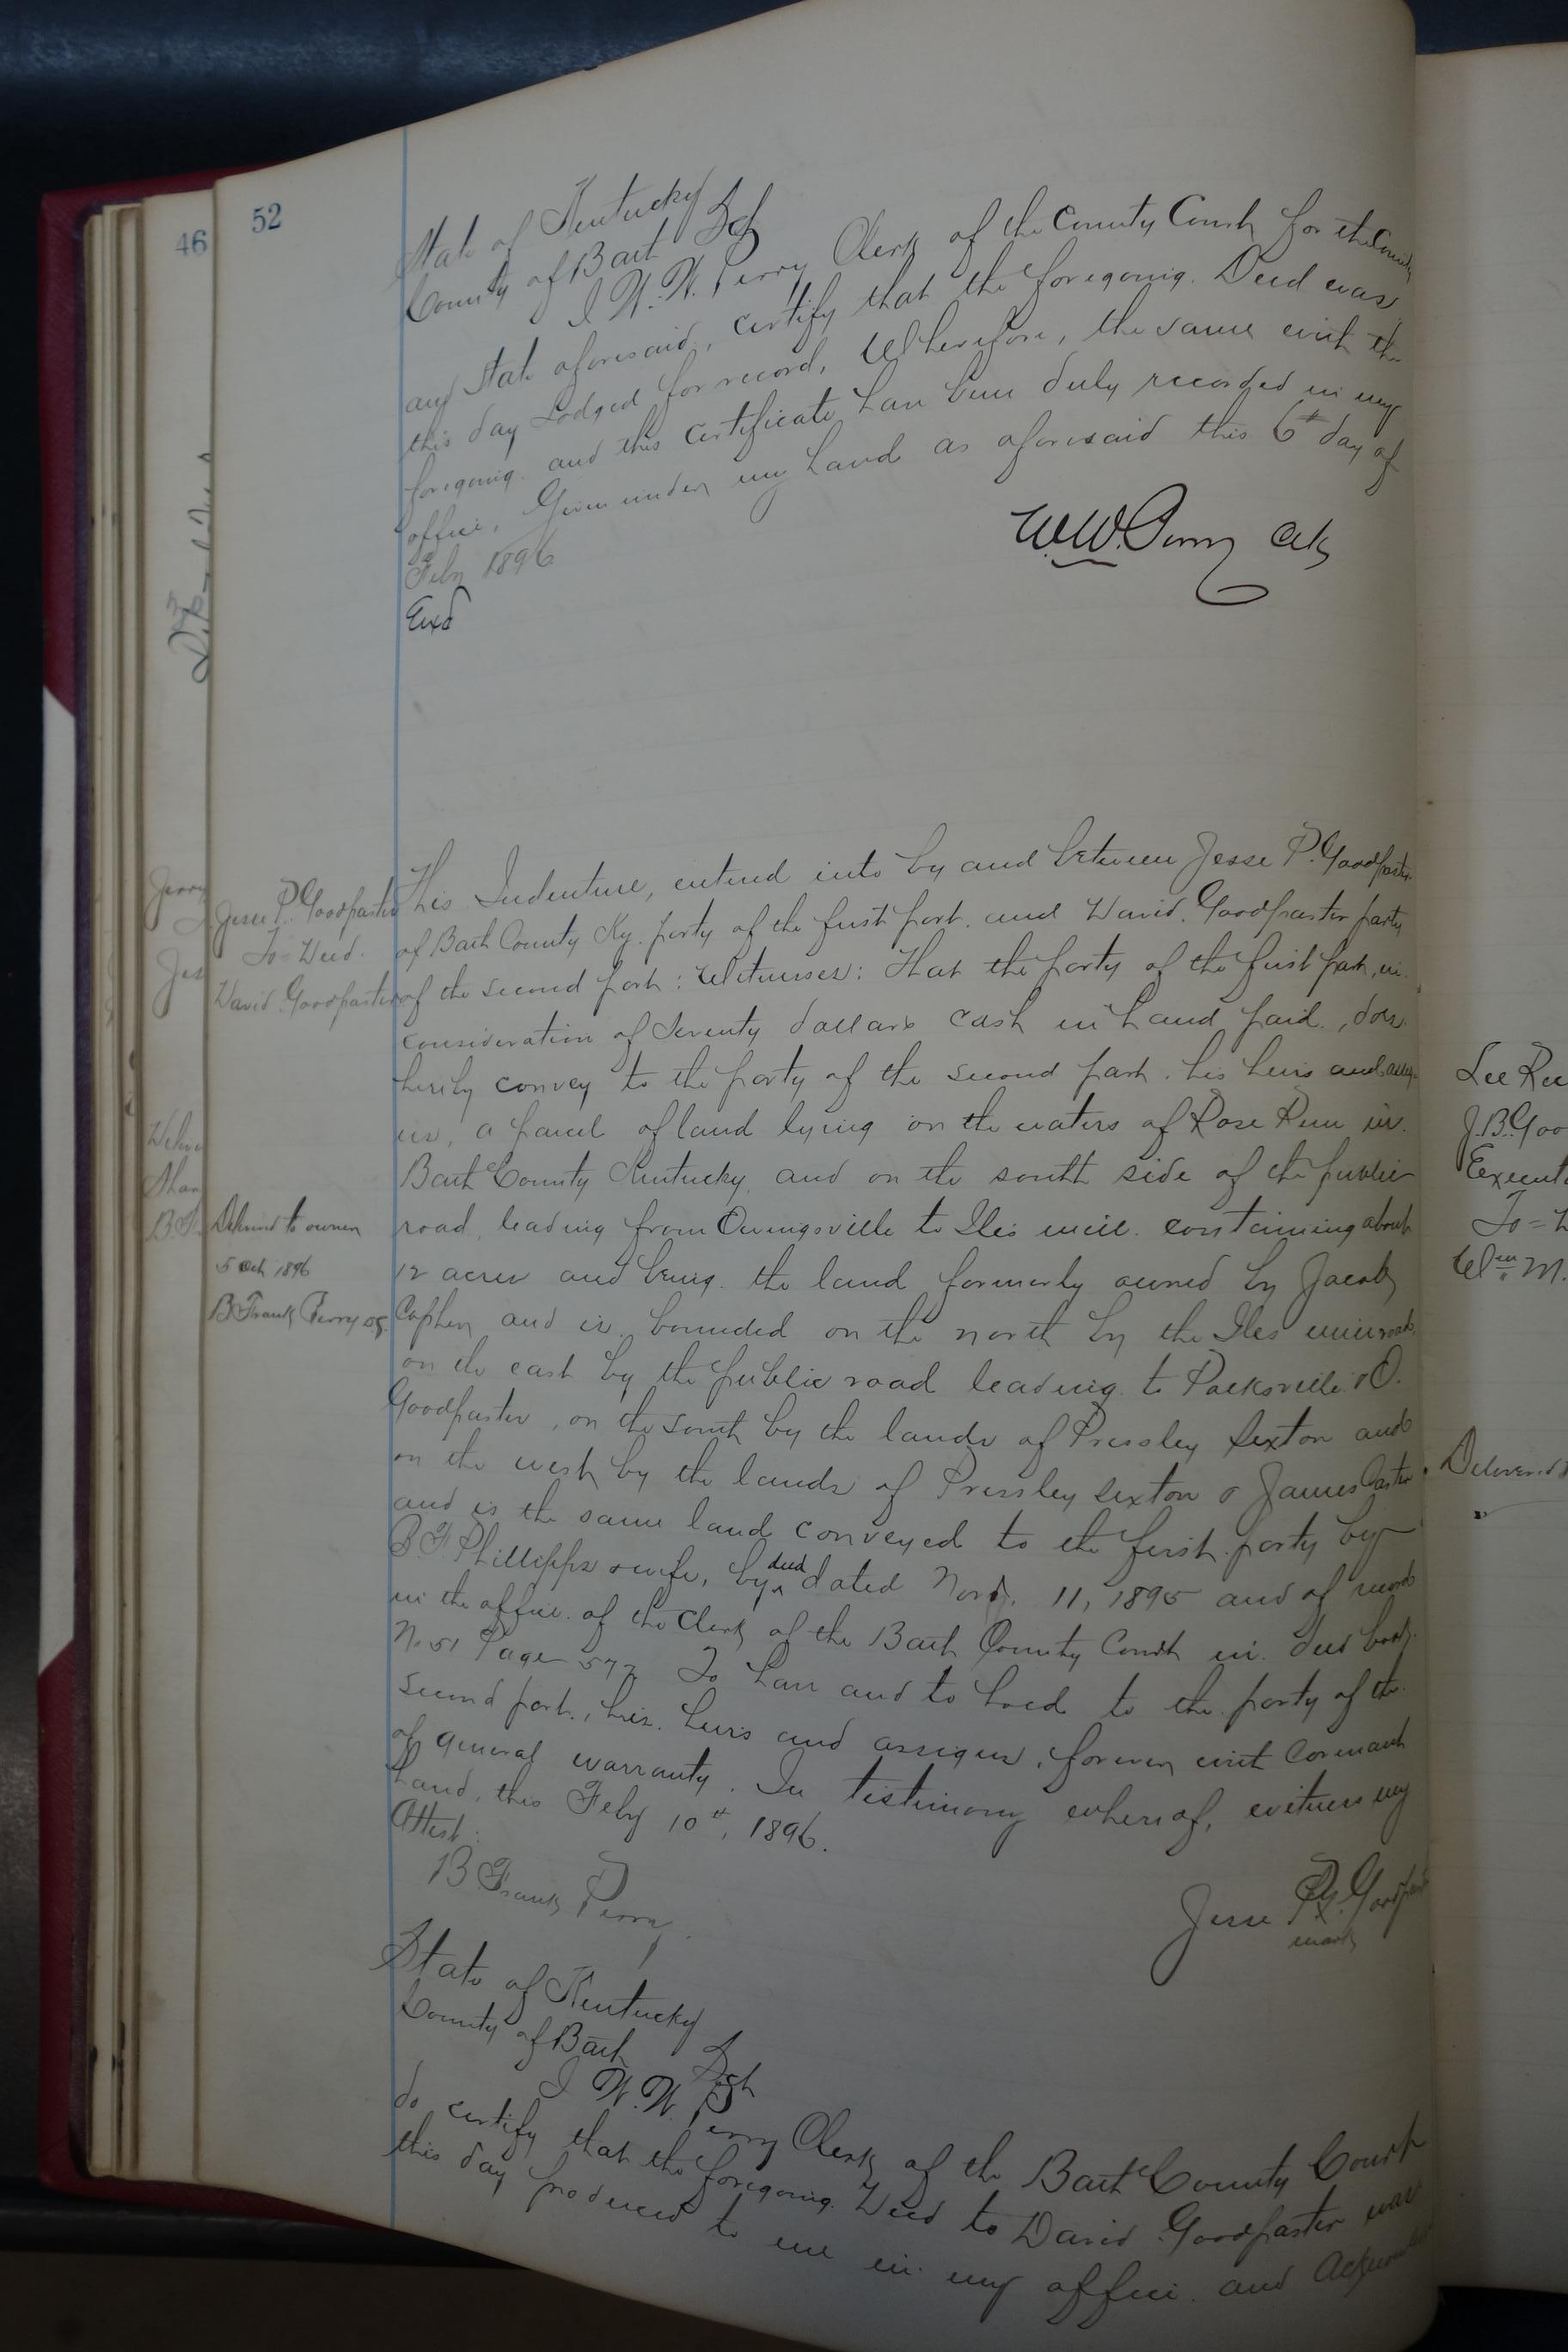 46
52
State of Kentucky
County of Bath Sct
I W. W. Perry Clerk of the County Court for the County
and State aforesaid, certify that the foregoing Deed was
this day Lodged for record, Wherefore, the same with the
foregoing and this certificate have been duly recorded in my
office, Given under my hand as aforesaid this 6th day of
Feby 1896
W.W. Perry Clk
Exd
Jesse P. Goodpaster
To = Deed.
David Goodpaster
Delivered to owner
5 Oct 1896
B Frank Perry DC
This Indenture, entered into by and between Jesse P. Goodpaster
of Bath County Ky. party of the first part. and David Goodpaster party
of the second part: Witnesses: That the party of the first part, in
consideration of Seventy dollars cash in hand paid, does
hereby convey to the party of the second part. his heirs and assig
ns, a parcel of land lying on the waters of Rose Run in
Bath County Kentucky and on the south side of the public
road leading from Owingsville to Iles mill. containing about
12 acres and being the land formerly owned by Jacob
and is bounded on the north by the Iles mill road,
on the east by the public road leading to &
Goodpaster, on the south by the lands of Pressley Sexton and
on the west by the lands of Pressley Sexton & James
and is the same land conveyed to the first party by
B.F. Phillipps & wife, by deed dated Nov. 11, 1895 and of record
in the office of the Clerk of the Bath County Court in deed book
No 51 Page 577 To have and to hold to the party of the
second part, his heirs and assigns, forever with Covenant
of general warranty. In testimony whereof, witness my
hand, this Feby 10th, 1896.
Attest:
B Frank Perry
Jesse P. X Goodpaster
mark
State of Kentucky
County of Bath Sct
I W. W. Perry Clerk of the Bath County Court
do certify that the foregoing Deed to David Goodpaster was
this day produced to me in my office and
J.B. Goo
To =
Wm M.